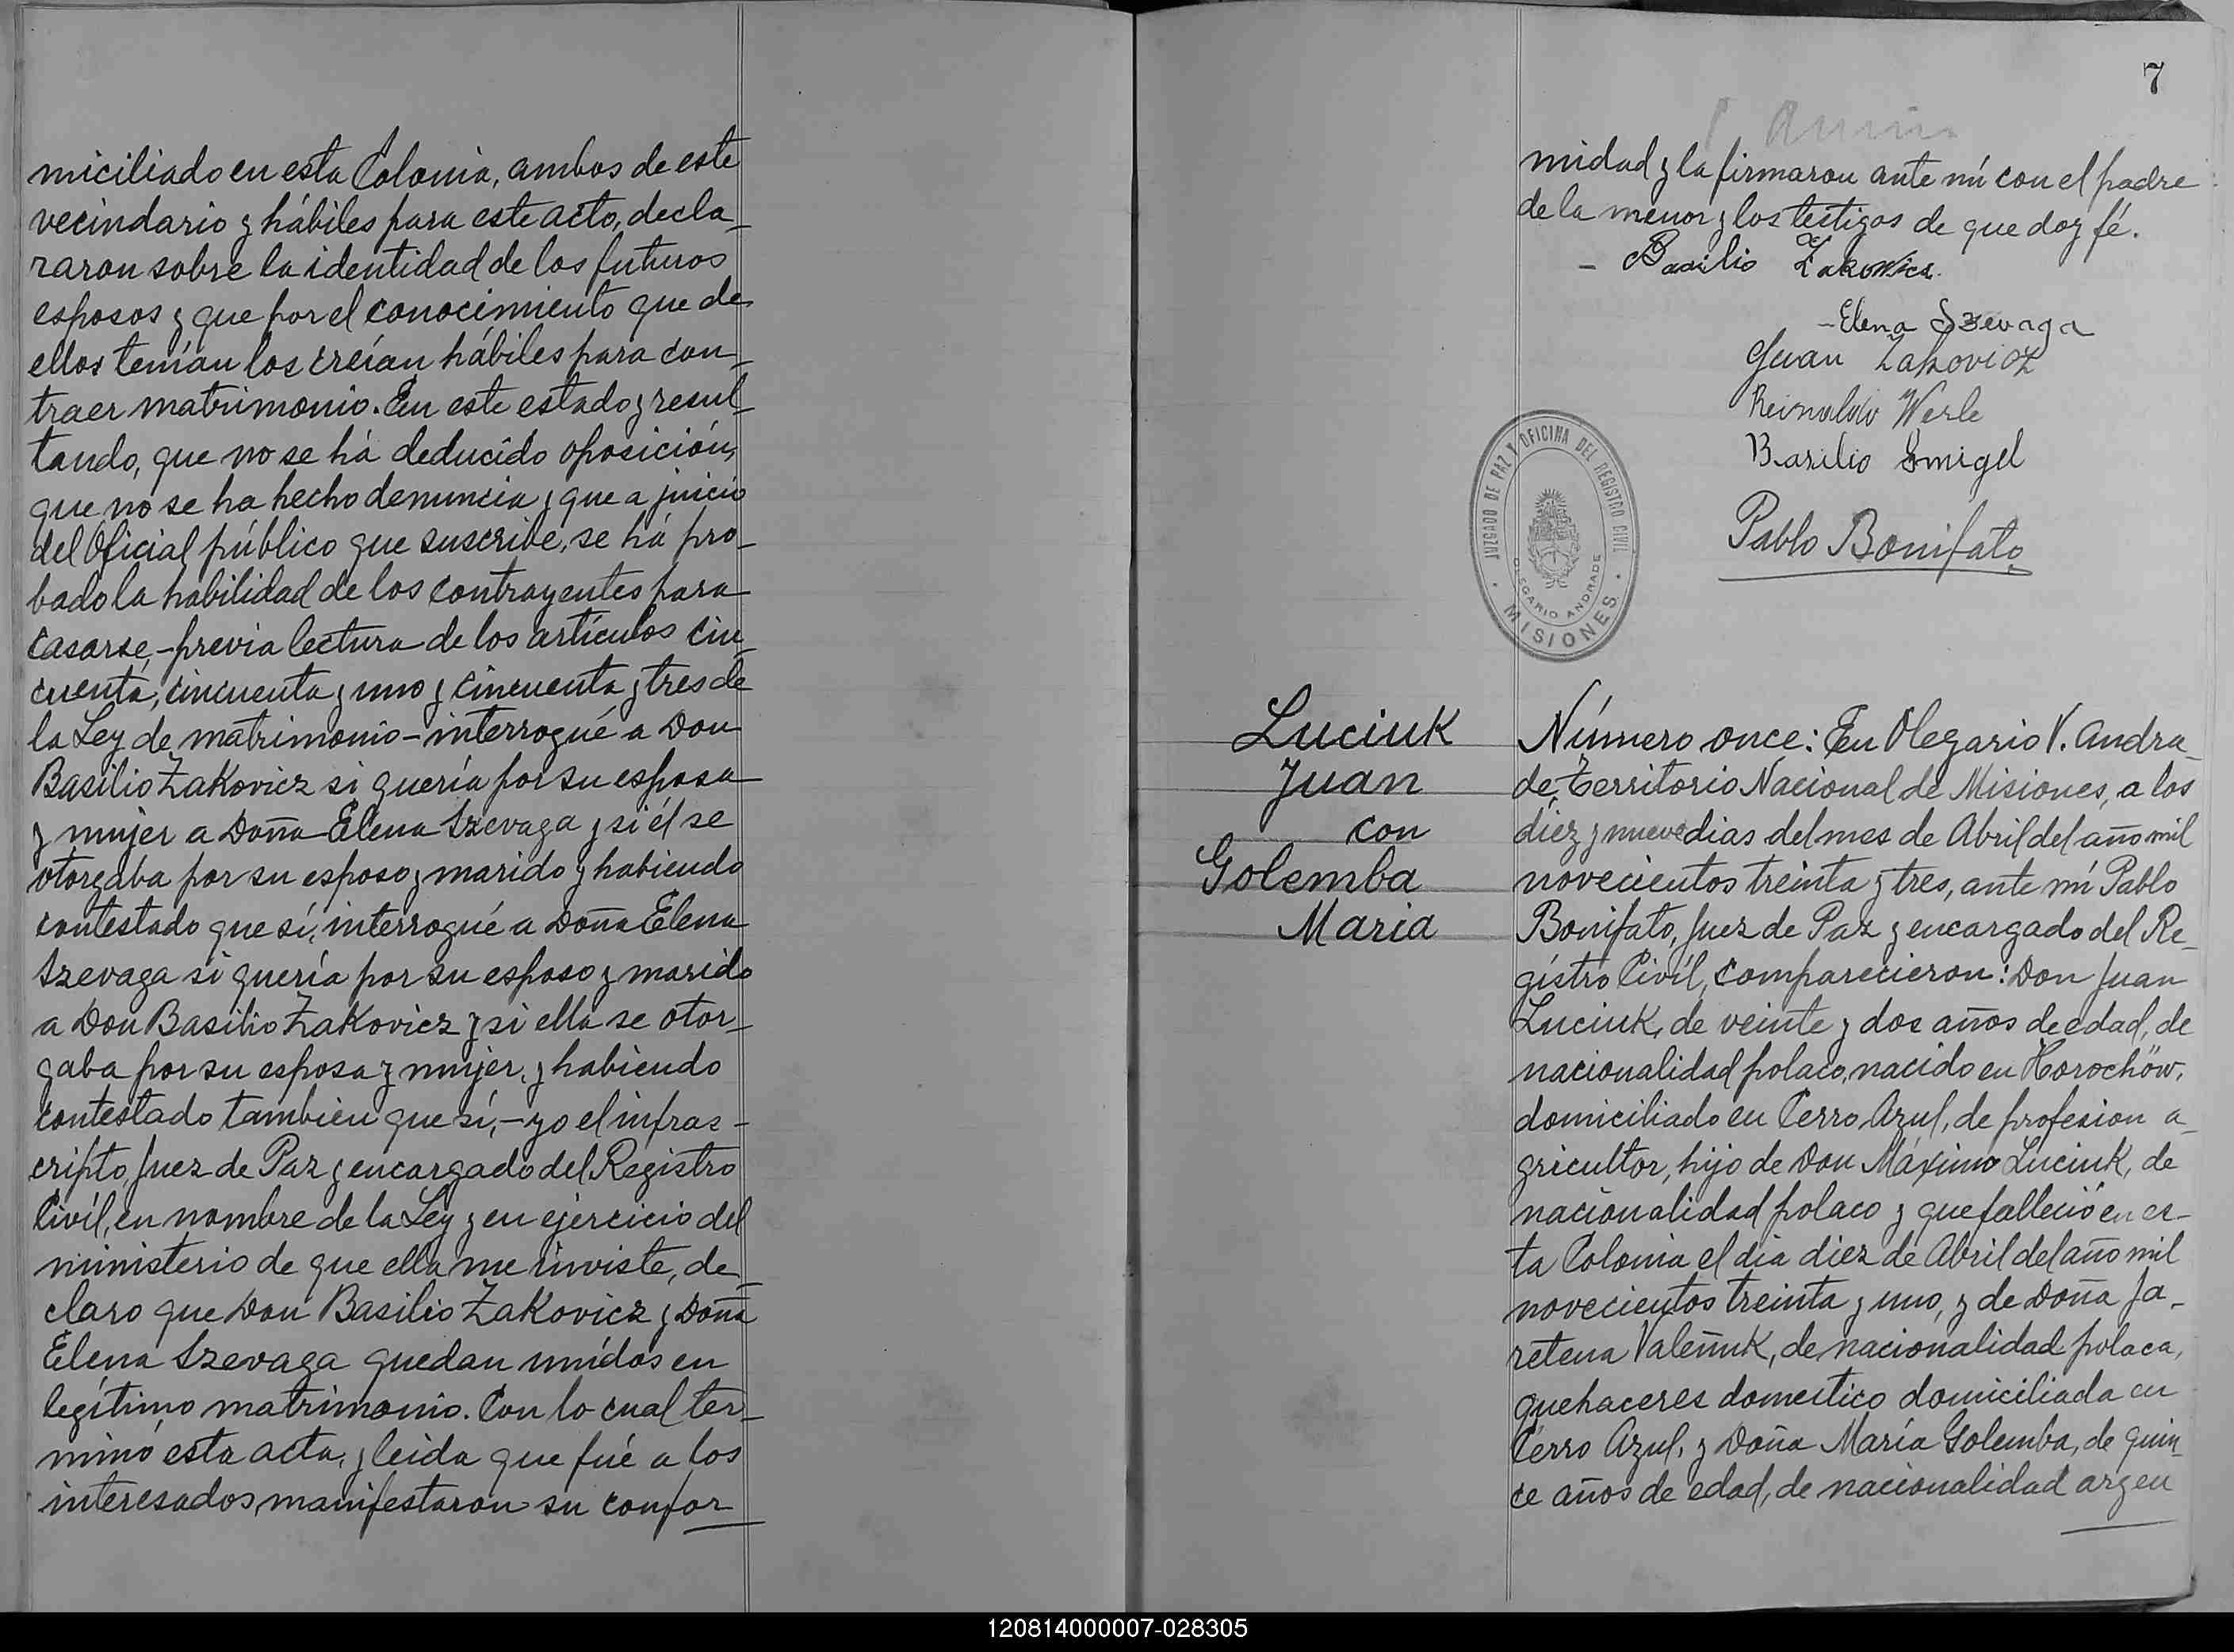 miciliado en esta Colonia, ambos de este
vecindario y hábiles para este acto, decla_
raron sobre la identidad de los futuros
esposos y que por el conocimiento que de
ellos tenían los creían hábiles para con_
traer matrimonio. En este estado y resul_
tando, que no se há deducido oposición,
que no se ha hecho denuncia y que a juicio
del Oficial público que suscribe, se há pro_
bado la habilidad de los contrayentes para
casarse,-previa lectura de los artículos cin_
cuenta, cincuenta y uno y cincuenta y tres de
la Ley de matrimonio-interrogué a Don
Basilio Zakovicz si quería por su esposa
y mujer a Doña Elena Szevaga y si él se
otorgaba por su esposo y marido y habiendo
contestado que sí, interrogué a Doña Elena
Szevaga si quería por su esposo y marido
a Don Basilio Zakovicz y si ella se otor_
gaba por su esposa y mujer, y habiendo
contestado tambien que sí,-yo el infras-
cripto, Juez de Paz y encargado del Registro
Civíl, en nombre de la Ley y en ejercicio del
ministerio de que ella me inviste, de_
claro que Don Basilio Zakovicz y Doña
Elena Szevaga quedan unídos en
legítimo matrimonio. Con lo cual ter_
minó esta acta, y leida que fué a los
interesados, manifestaron su confor
7
midad y la firmaron ante mí con el padre
de la menor y los testigos de que doy fé.
- Basilio Zakowicz.
-Elena Szevaga
Juan Zakovicz
Reinaldo Werle
Basilio Smigel
Pablo Bonifato
JUZGADO DE PAZ Y OFICINA DEL REGISTRO CIVIL
OLEGARIO ANDRADE
MISIONES
Luciuk
Juan
con
Golemba
Maria
Número once: En Olegario V. Andra_
de, Territorio Nacional de Misiones, a los
diéz y nueve dias del mes de Abril del año mil
novecientos treinta y tres, ante mí Pablo
Bonifato, Juez de Paz y encargado del Re_
gístro Civíl, comparecieron: Don Juan
Luciuk, de veinte y dos años de edad, de
nacionalidad polaco, nacido en Horochöw,
domiciliado en Cerro Azul, de profesion a_
gricultor, hijo de Don Máximo Luciuk, de
nacionalidad polaco y que falleció en es-
ta Colonia el dia diez de Abril del año mil
novecientos treinta y uno, y de Doña Ja_
retena Valeñuk, de nacionalidad polaca,
quehaceres domestico domiciliada en
Cerro Azul, y Doña María Golemba, de quin_
ce años de edad, de nacionalidad argen
120814000007-028305